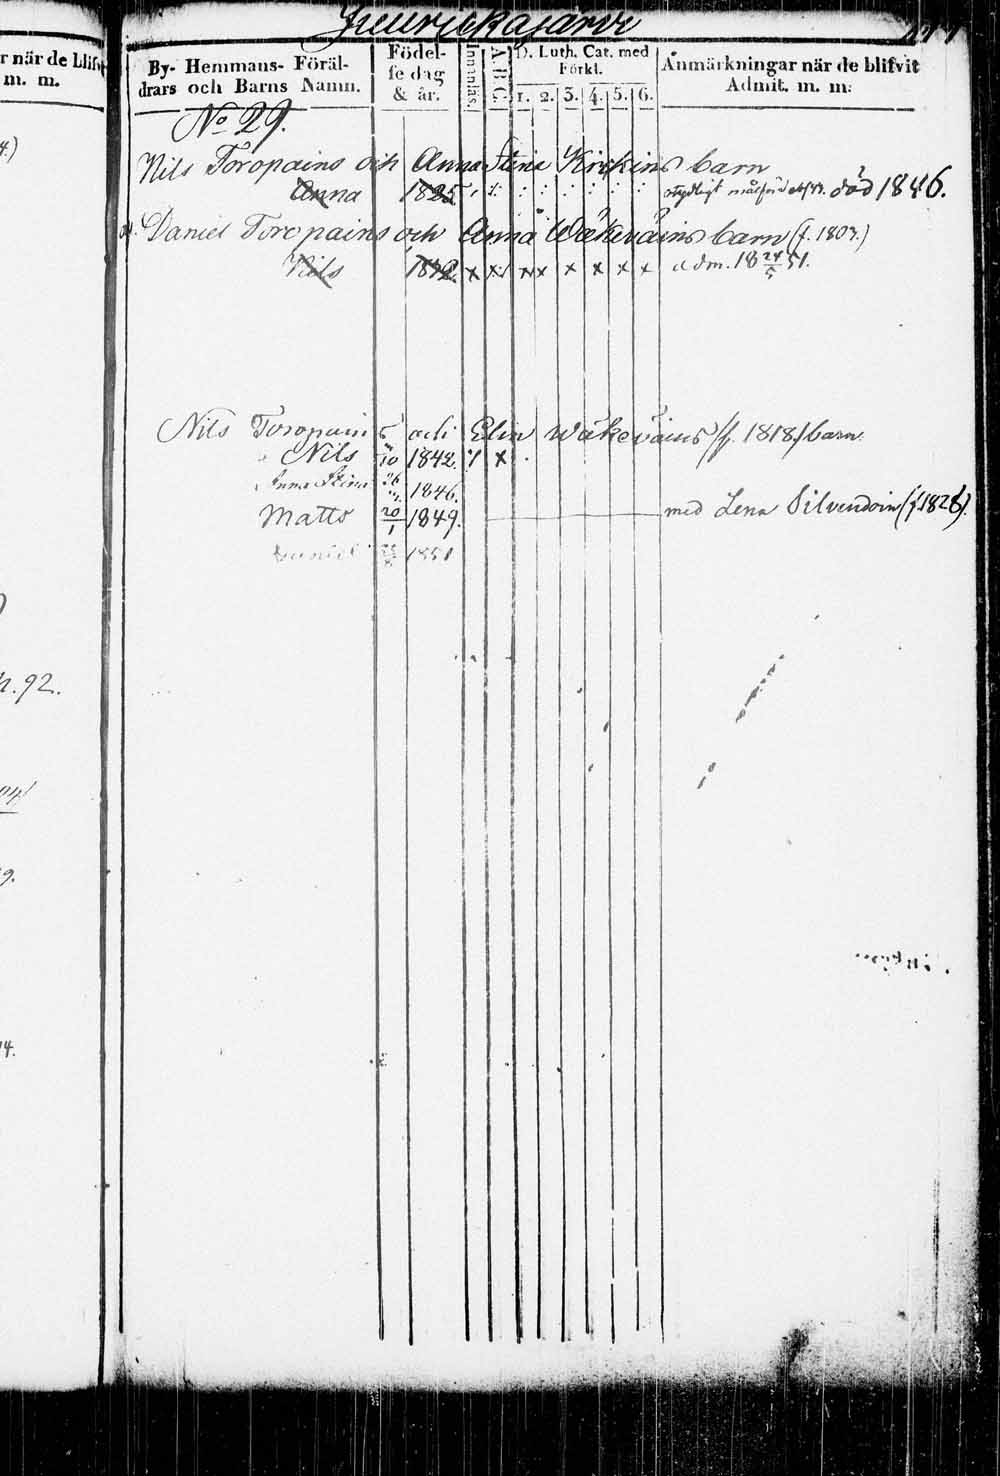 r när de blifv
m. m.
4.)
n. 92.
04
9.
14.
By- Hemmans- Föräl-
drars och Barns Namn.
Födel-
se dag
& år.
Innanläs.
A. B. C.
D. Luth. Cat. med
Förkl.
1. 2. 3. 4. 5. 6.
Anmärkningar när de blifvit
Admit. m. m:
No 29.
Nils Toropains och Anna Stina Kickins barn
Anna 1825 död 1846.
Daniel Toropains och Anna Wäkeväins barn (f. 1807.)
Nils x x x x x x x x adm. 18 24/5 51.
Nils Toropains och Elin Wäkeväins (f. 1818.) barn
Nils 5/10 1842. x
Anna Stina 26 1846.
Matts 20/1 1849. med Lena Silvendoin (f. 1828).
Daniel 1851